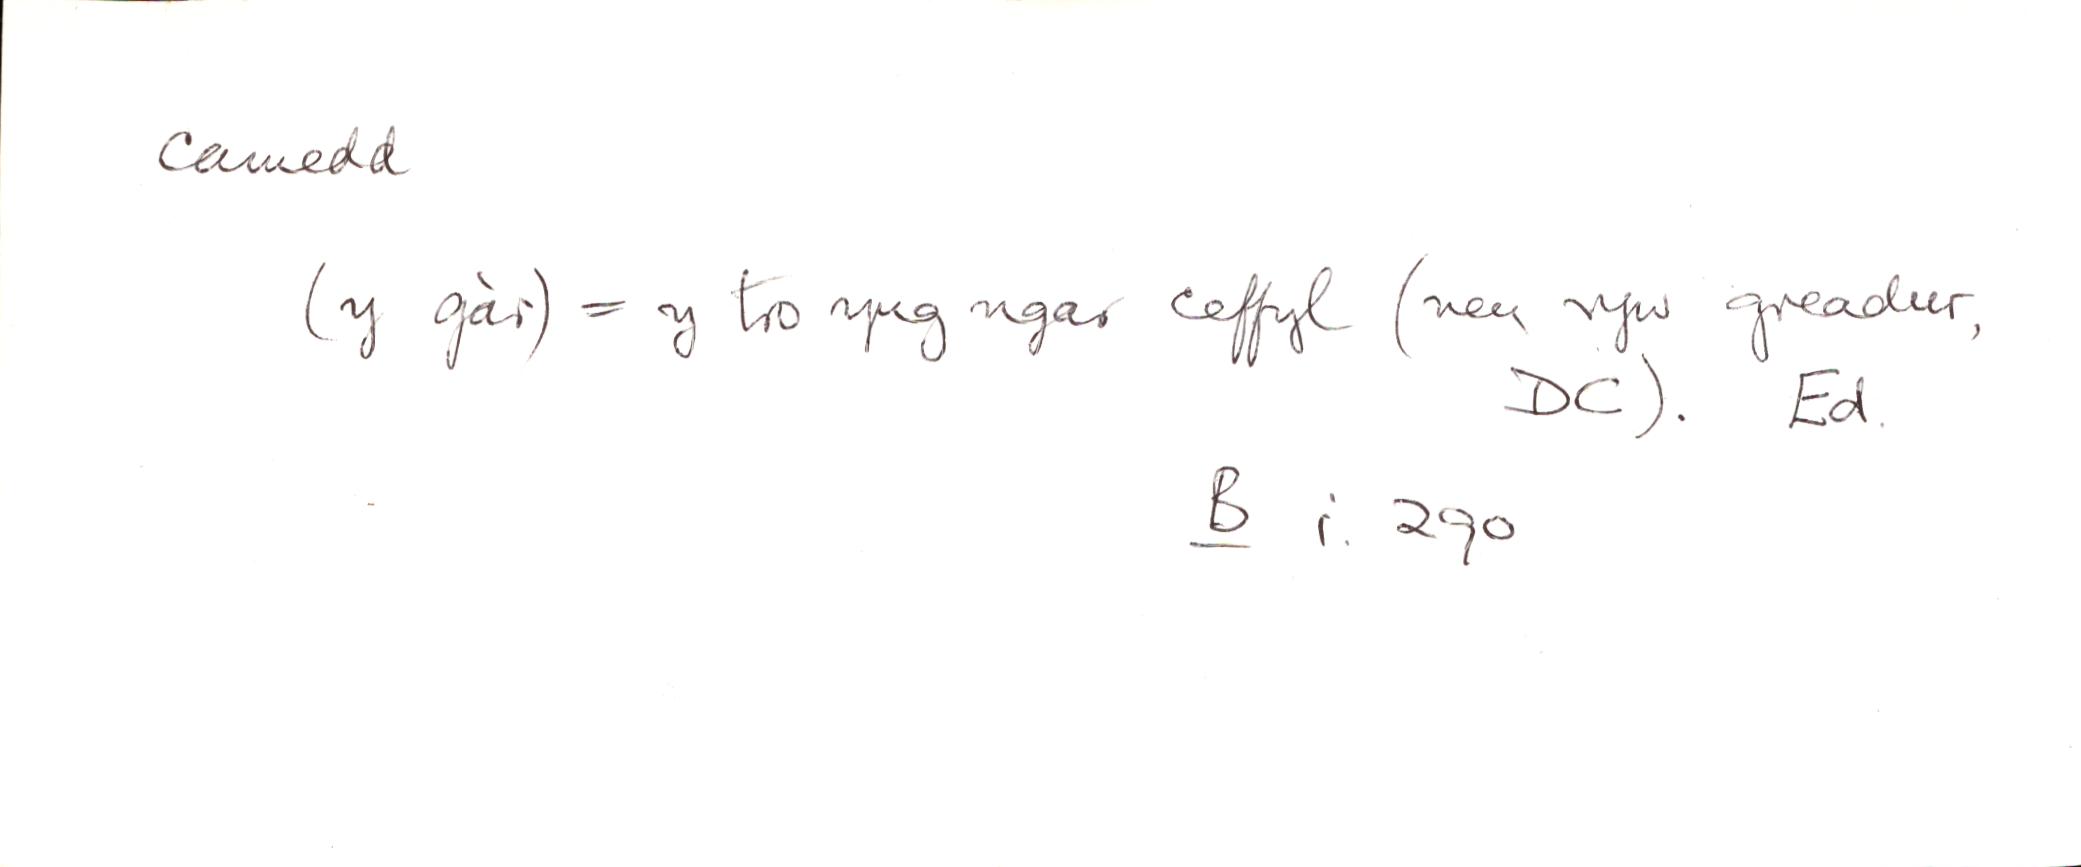 camedd
(y gàr) = y tro yng ngar ceffyl (neu ryw greadur,
DC). Ed.
B i. 290